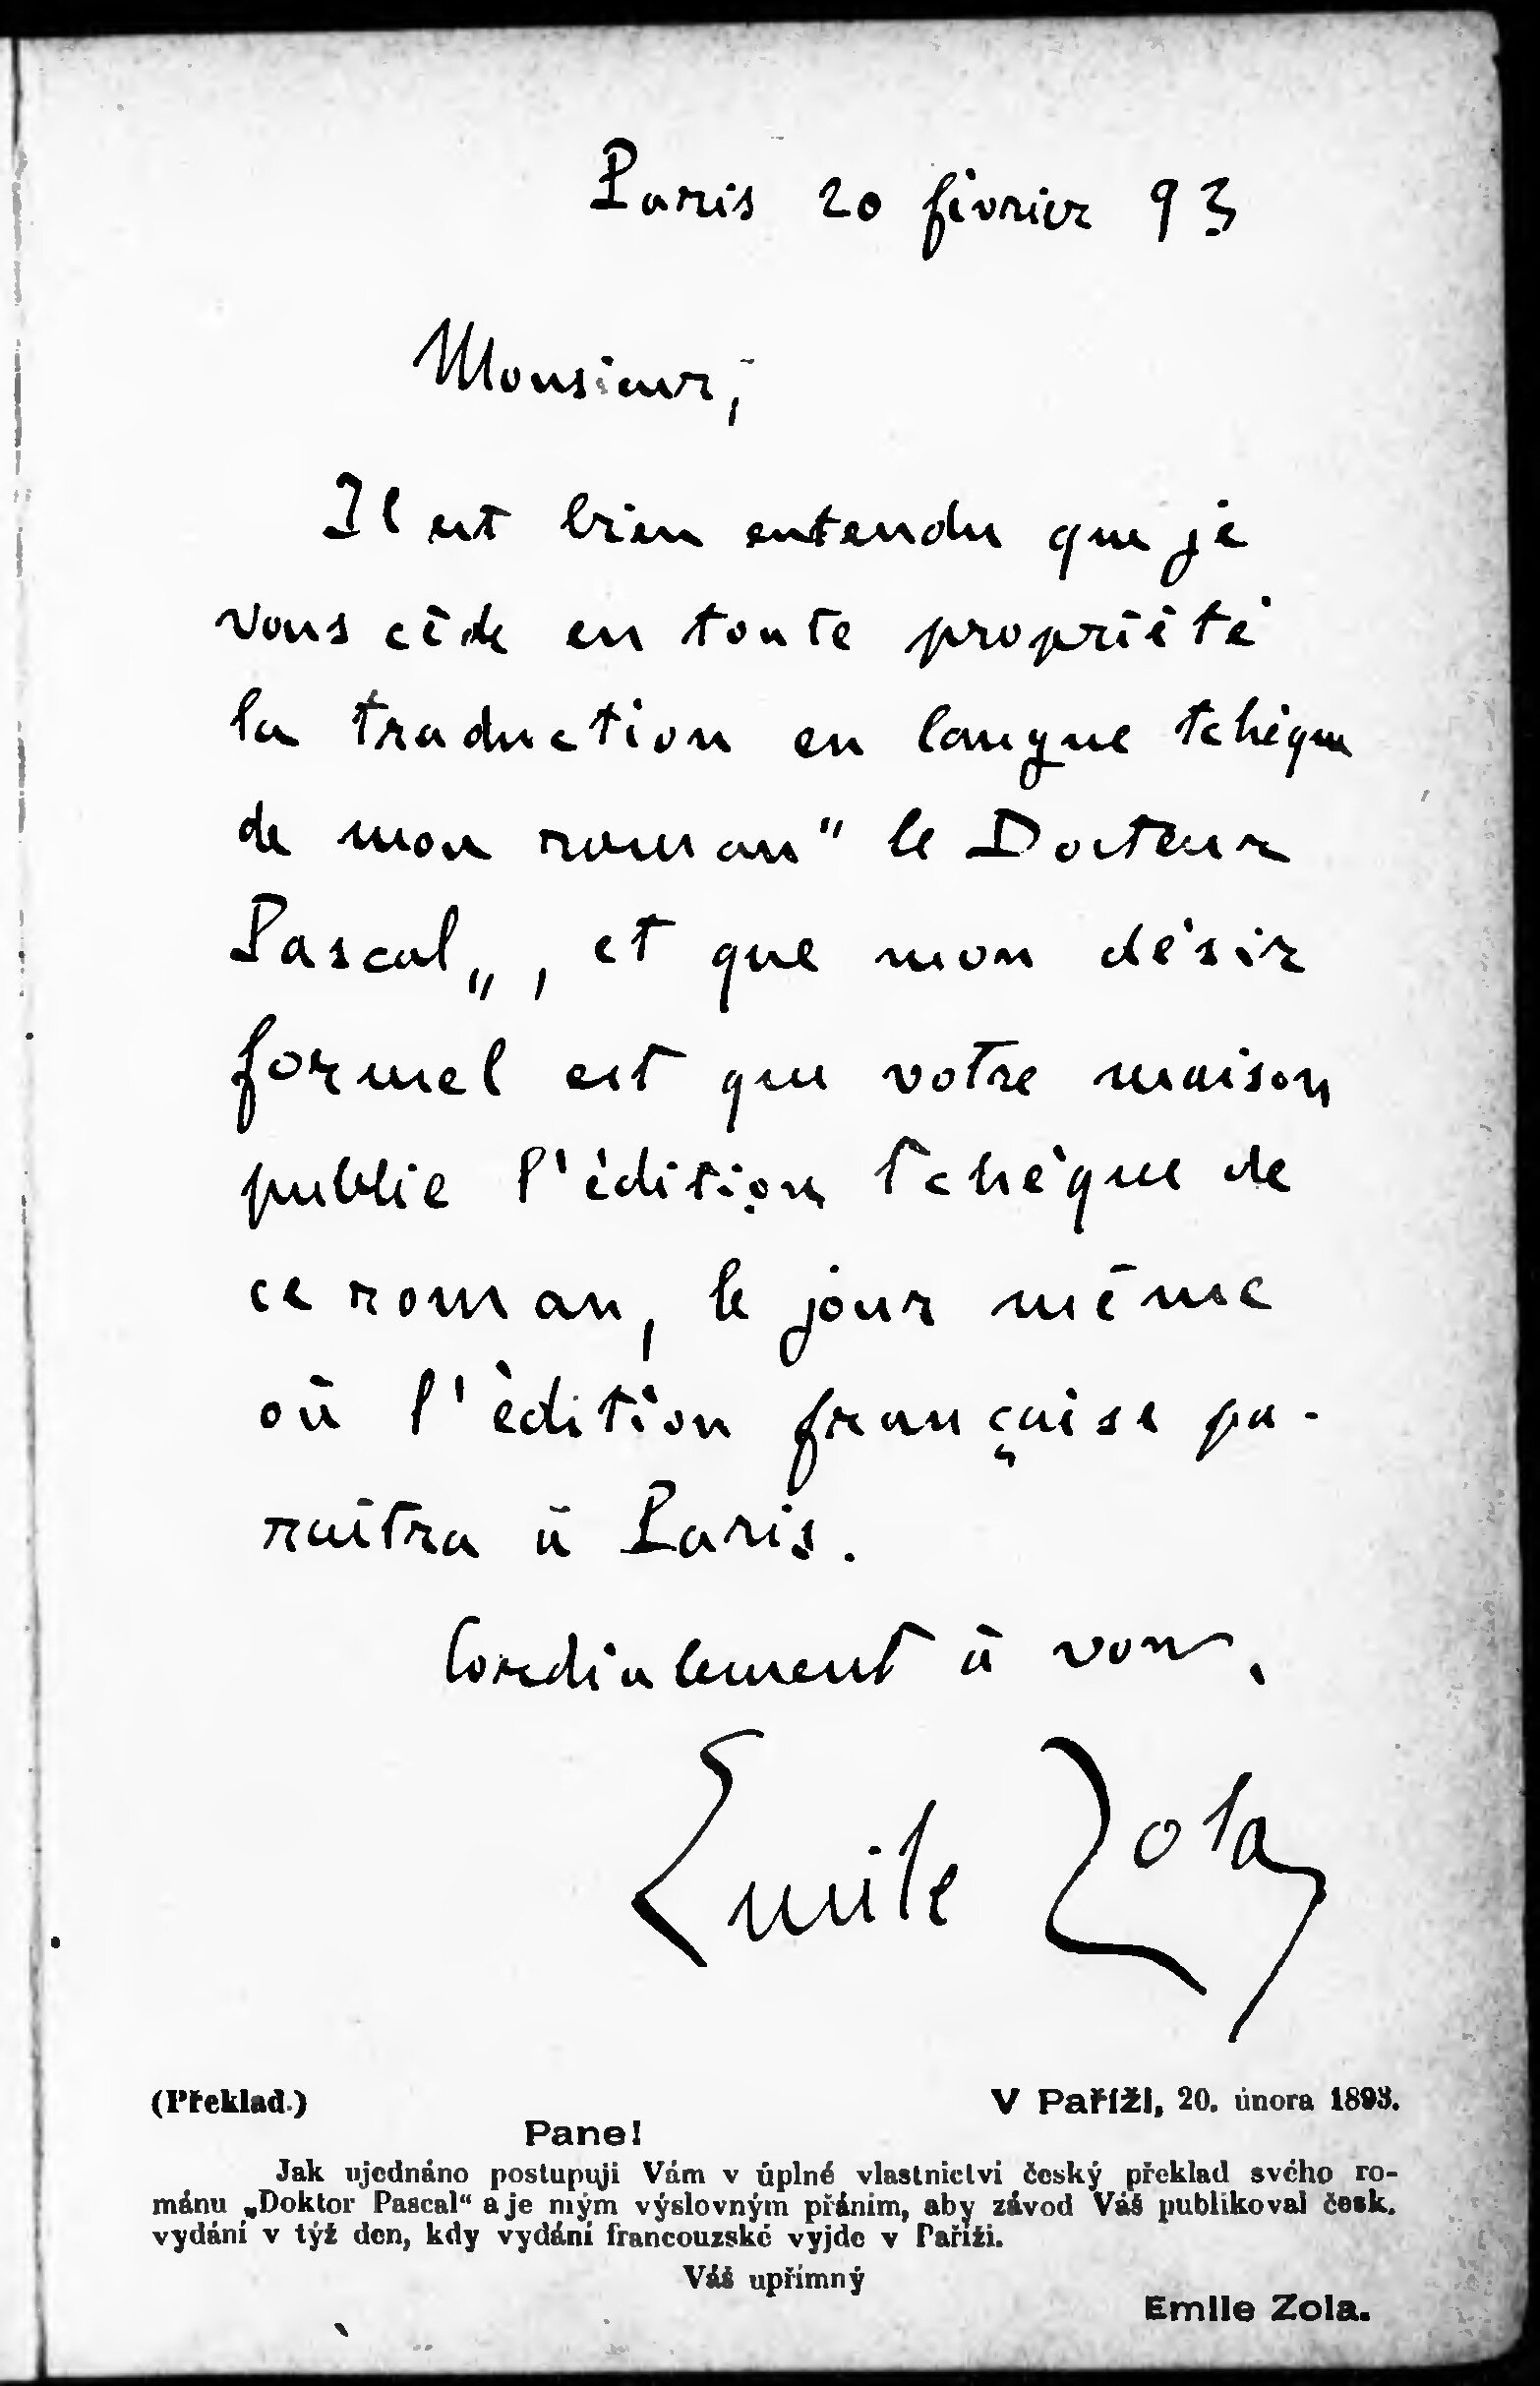 Paris 20 février 93
Monsieur,
Il est bien entendu que je
vous cède en toute propriété
la traduction en langue tchèque
de mon roman " le Docteur
Pascal „ , et que mon désir
formel est que votre maison
publie l'édition tchèque de
ce roman, le jour même
où l'édition française pa-
raîtra à Paris.
Cordialement à vous.
Emile Zola
(Překlad.) V Paříži, 20. února 1893.
Pane!
Jak ujednáno postupuji Vám v úplné vlastnictví český překlad svého ro-
mánu „Doktor Pascal“ a je mým výslovným přáním, aby závod Váš publikoval česk.
vydání v týž den, kdy vydání francouzské vyjde v Paříži.
Váš upřímný
Emile Zola.